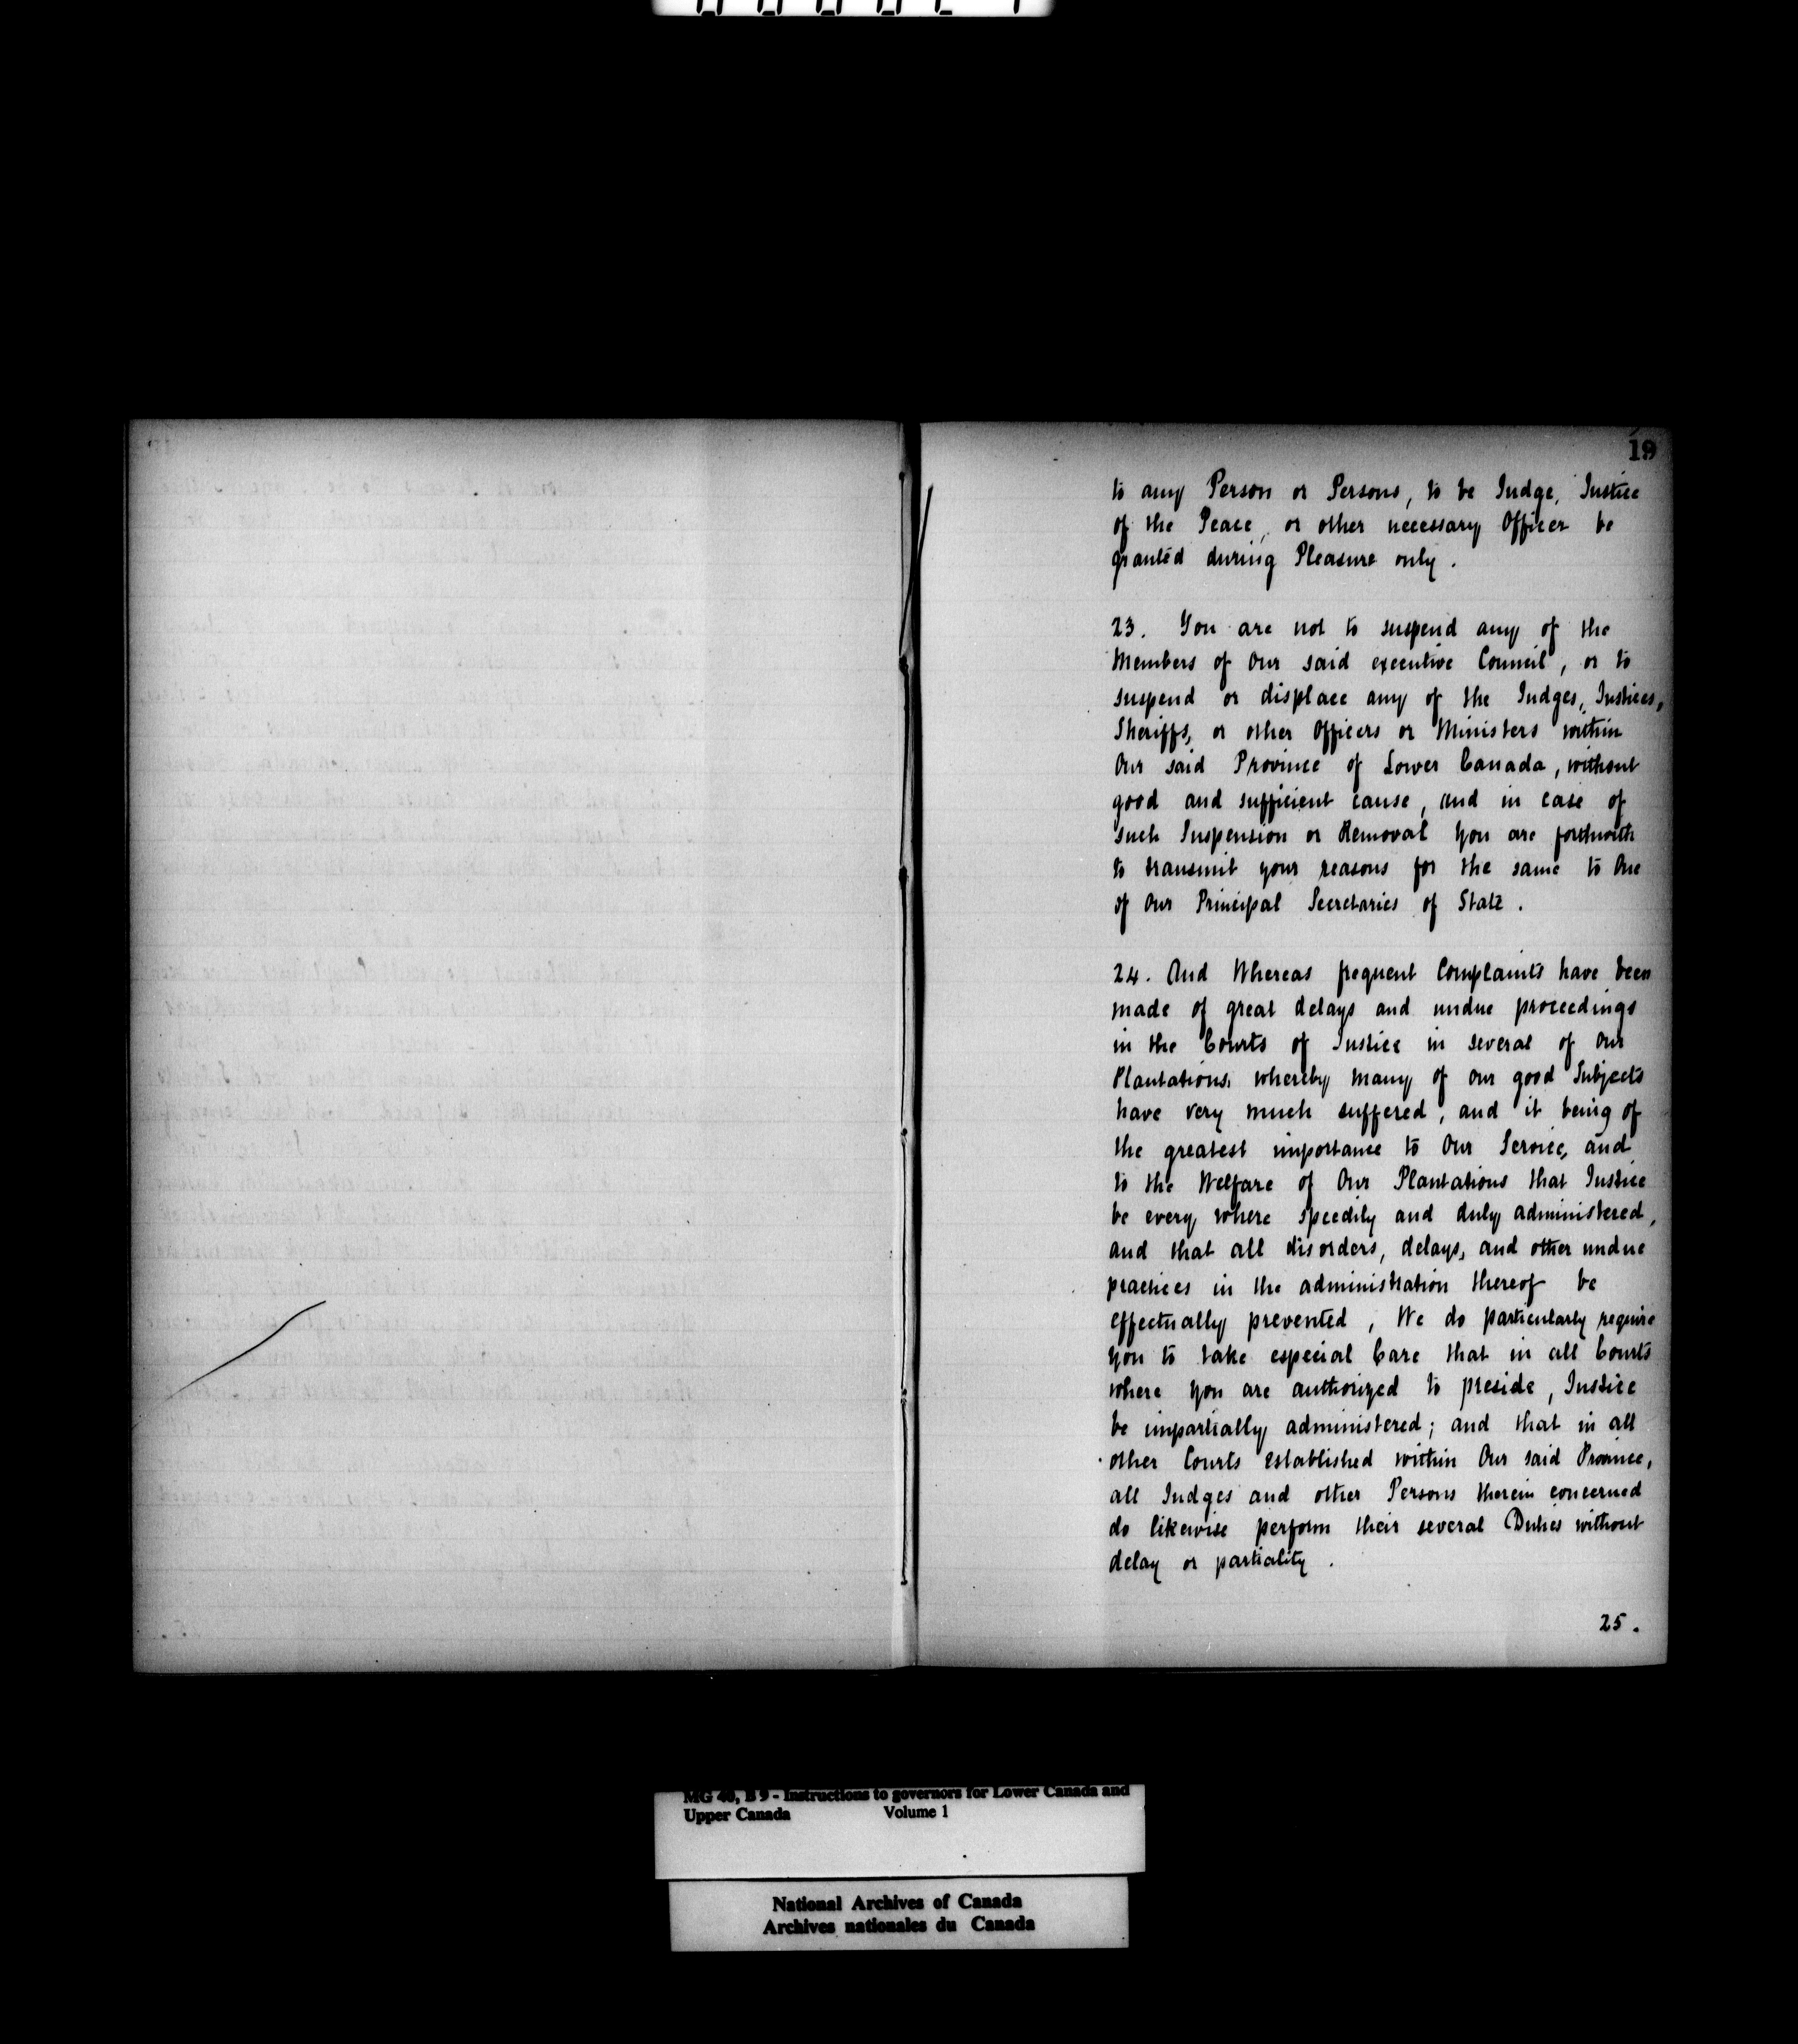 19
to any Person or Persons, to be Judge, Justice
of the Peace, or other necessary Officer be
granted during Pleasure only.
23. You are not to suspend any of the
Members of Our said executive Council, or to
suspend or displace any of the Judges, Justices,
Sheriffs, or other Officers or Ministers within
Our said Province of Lower Canada, without
good and sufficient cause, and in case of
such Suspension or Removal You are forthwith
to transmit your reasons for the same to One
of Our Principal Secretaries of State.
24. And Whereas frequent Complaints have been
made of great delays and undue proceedings
in the Courts of Justice in several of Our
Plantations, whereby many of our good Subjects
have very much suffered, and it being of
the greatest importance to Our Service, and
to the Welfare of Our Plantations that Justice
be every where speedily and duly administered,
and that all disorders, delays, and other undue
practices in the administration thereof be
effectually prevented, We do particularly require
You to take especial Care that in all Courts
where You are authorized to preside, Justice
be impartially administered; and that in all
other Courts established within Our said Province,
all Judges and other Persons therein concerned
do likewise perform their several Duties without
delay or partiality.
25.
MG 40, B 9 - Instructions to governors for Lower Canada and
Upper Canada Volume 1
National Archives of Canada
Archives nationales du Canada